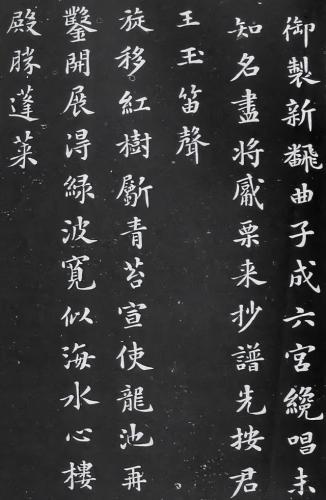 御製新飜曲子成六宮纔唱未
知名盡将觱栗来抄譜先按君
王玉笛聲
旋移紅樹斸青苔宣使龍池再
鑿開展淂綠波寬似海水心樓
殿勝蓬萊